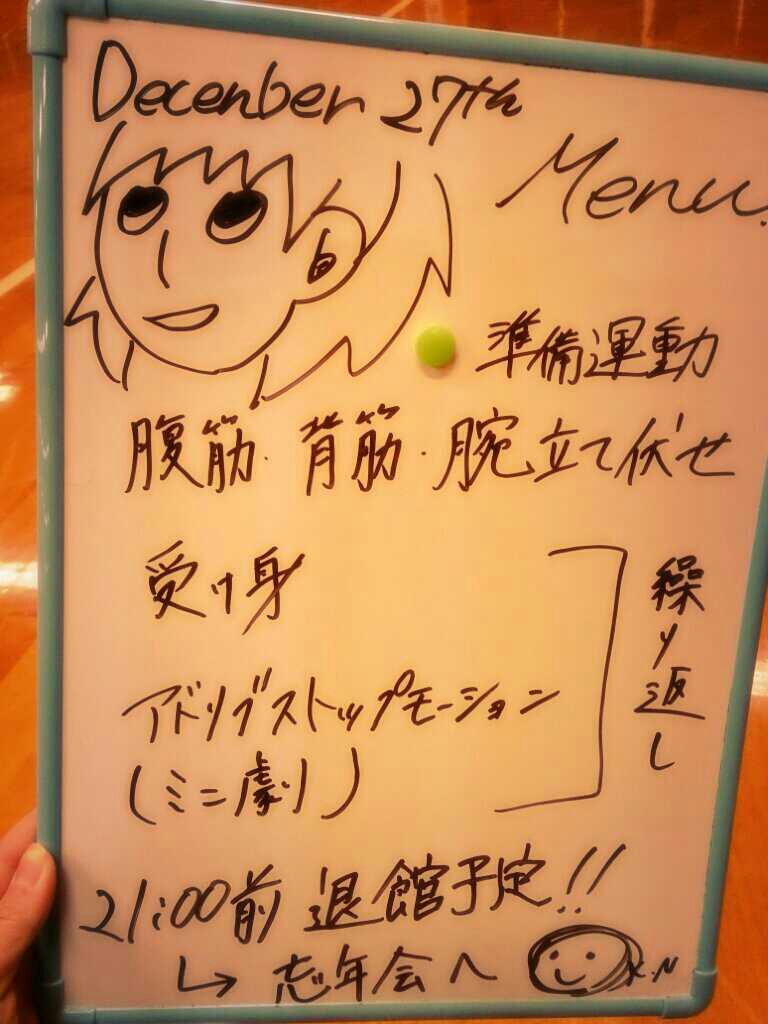 December 27th
Menu.
準備運動
腹筋・背筋・腕立て伏せ
受け身
アドリブストップモーション
(ミニ劇)
繰り返し
21:00前 退館予定!!
↳ 忘年会へ
K.N